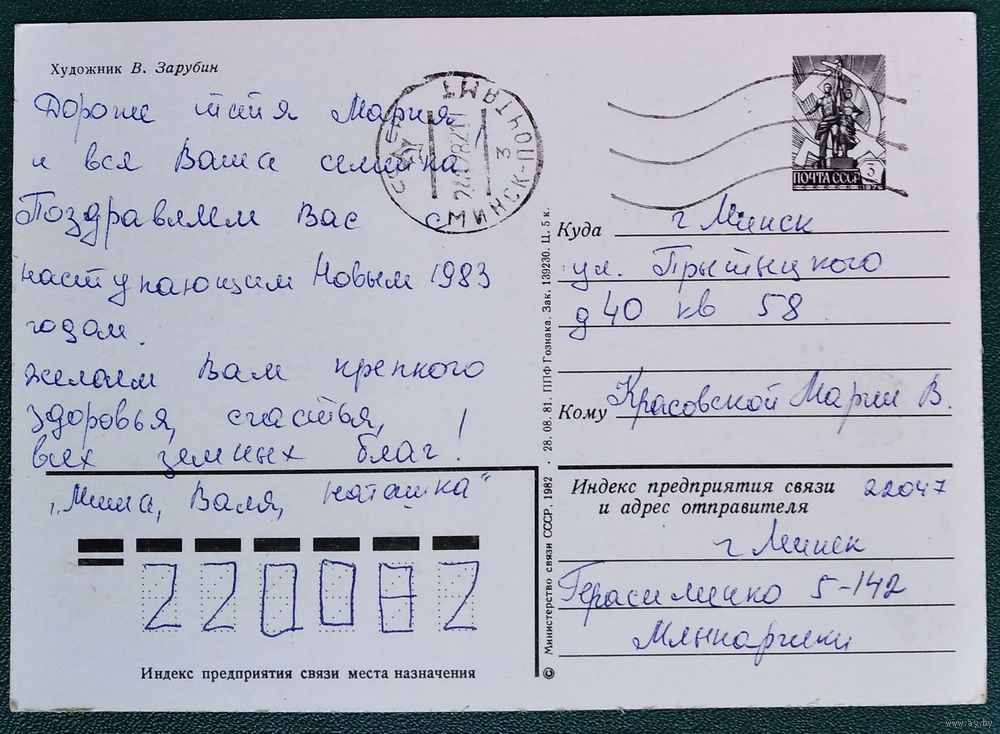 Художник В. Зарубин
Дорогие тётя Мария
и вся Ваша семейка!
Поздравляем Вас с
наступающим Новым 1983
годом.
желаем Вам крепкого
здоровья, счастья,
всех земных благ!
„Миша, Валя, Наташка“
220082
Индекс предприятия связи места назначения
МИНСК-ПОЧТАМТ
3
ПОЧТА СССР
3
Куда г Минск
ул. Прытыцкого
д 40 кв 58
Кому Красовской Марии В.
Индекс предприятия связи 22047
и адрес отправителя
г Минск
Герасименко 5-142
© Министерство связи СССР, 1982 · 28. 08. 81. ППФ Гознака. Зак. 139230. Ц. 5 к.
www.ay.by